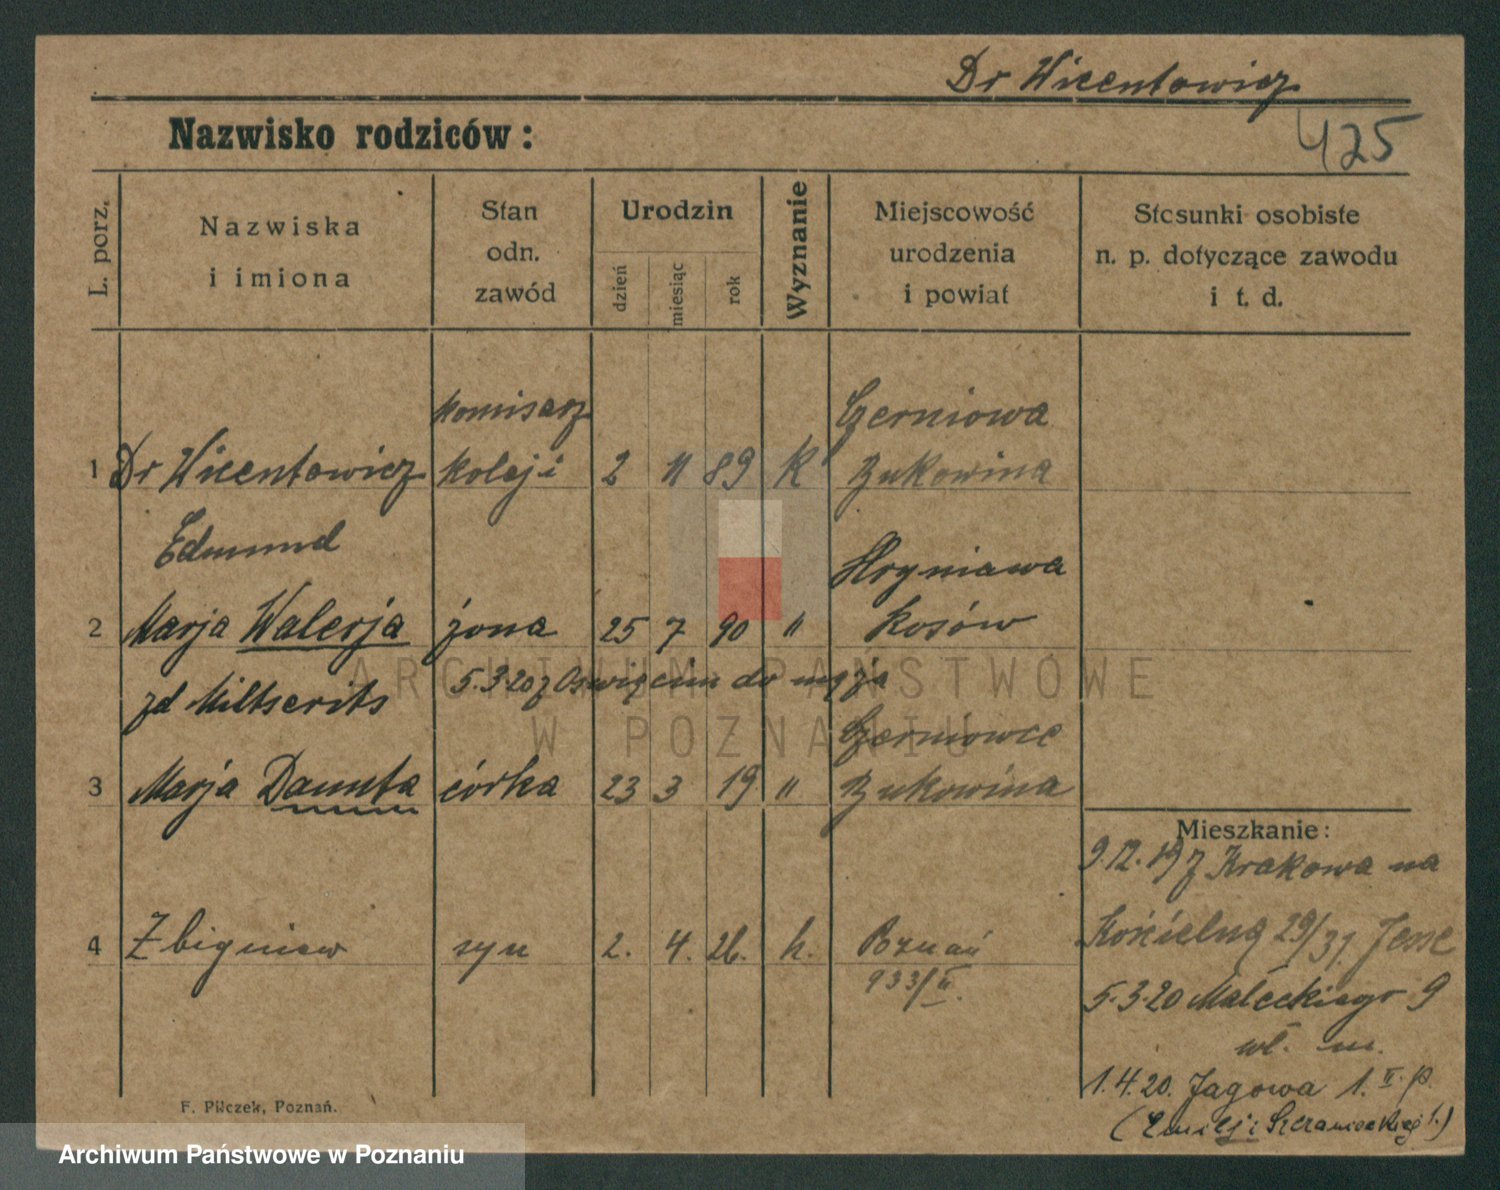 Dr Wicentowicz
425
Nazwisko rodziców:
L. porz.
Nazwiska
i imiona
Stan
odn.
zawód
Urodzin
dzień
miesiąc
rok
Wyznanie
Miejscowość
urodzenia
i powiat
Stosunki osobiste
n. p. dotyczące zawodu
i t. d.
komisarz Czerniowa
1 Dr Wicentowicz koleji 2 11 89 K Bukowina
Edmund Hryniawa
2 Marja Walerja żona 25 7 90 " Kosów
zd Miltserits 5.3.20 z Oświęcim do męża
Czerniowce
3 Marja Danuta córka 23 3 19 " Bukowina
Mieszkanie:
9.12.19 z Krakowa na
Kościelną 29/31
4 Zbigniew syn 2. 4. 26. k. Poznań
933/II.
5.3.20 Małeckiego 9
wł. m.
1.4.20. Jagowa 1. II. p.
(Emilji Szczanieckiej 1.)
F. Pilczek, Poznań.
ARCHIWUM PAŃSTWOWE
W POZNANIU
Archiwum Państwowe w Poznaniu